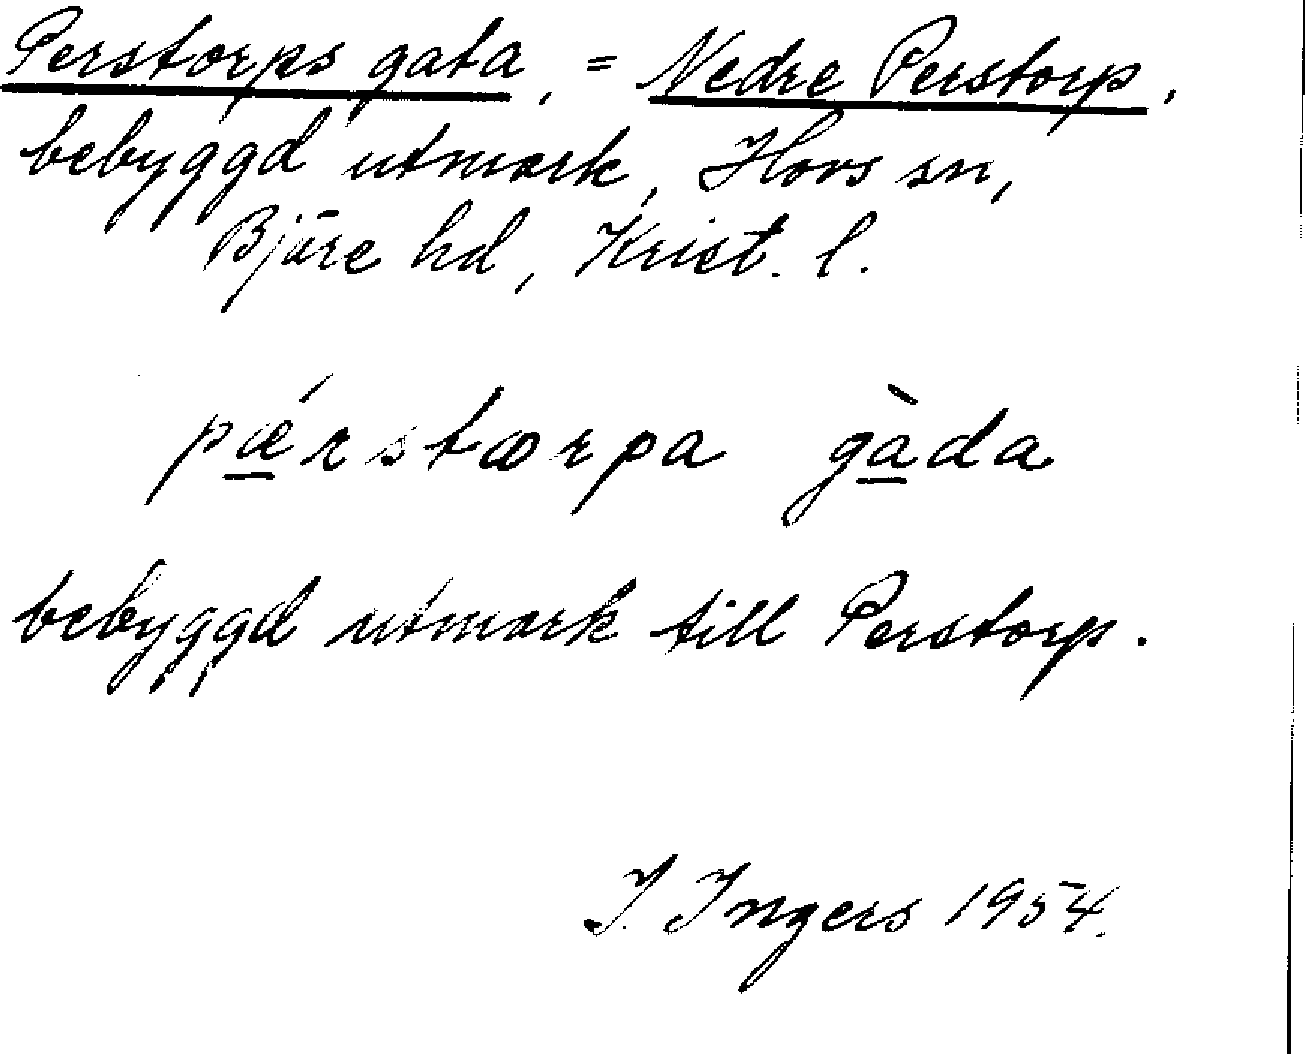 Perstorps gata, = Nedre Perstorp,
bebyggd utmark, Hovs sn,
Bjäre hd, Krist. l.
pǽrstœrpa gàda
bebyggd utmark till Perstorp.
I. Ingers 1954.